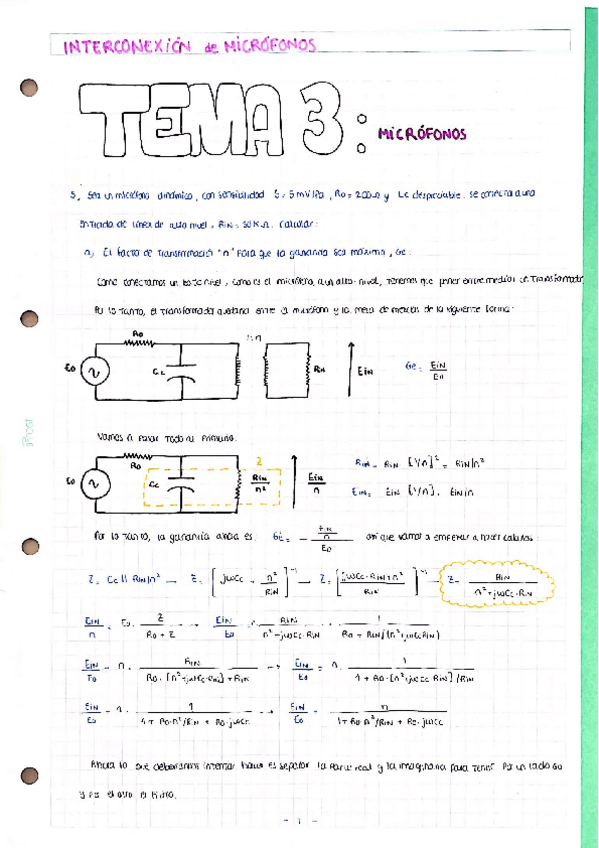 INTERCONEXIÓN de MICRÓFONOS
TEMA 3:
MICRÓFONOS
5, Sea un micrófono dinámico, con sensibilidad S = 5 mV/Pa, Ro = 200 Ω y Lc despreciable. Se conecta a una
entrada de línea de alto nivel, RiN = 50 KΩ. Calcular:
a) El factor de transformación "n" para que la ganancia sea máxima, Ge:
Como conectamos un bajo nivel, como es el micrófono, a un alto-nivel, tenemos que poner entremedias un transformador
Por lo tanto, el transformador quedaría entre el micrófono y la mesa de mezclas de la siguiente forma:
Ro
1:n
Eo
Cc
RiN
EiN
Ge = EiN / Eo
Vamos a pasar todo al primario.
Ro
Z
Eo
Cc
RiN / n²
EiN / n
RiN' = RiN [1/n]² = RiN/n²
EiN' = EiN [1/n] = EiN/n
Por lo tanto, la ganancia ahora es: Ge = (EiN / n) / Eo así que vamos a empezar a hacer cálculos
Z = Cc || RiN/n² → Z = [jωCc + n²/RiN]⁻¹ → Z = [(jωCc·RiN+n²)/RiN]⁻¹ → Z = RiN / (n²+jωCc·RiN)
EiN/n = Eo · Z/(Ro+Z) → EiN/Eo = n · RiN/(n²+jωCc·RiN) · 1/(Ro + RiN/(n²+jωCcRiN))
EiN/Eo = n · RiN/(Ro·[n²+jωCc·RiN]+RiN) → EiN/Eo = n · 1/(1+Ro·[n²+jωCc·RiN]/RiN)
EiN/Eo = n · 1/(1+Ro·n²/RiN + Ro·jωCc) → EiN/Eo = n/(1+Ro·n²/RiN + Ro·jωCc)
Ahora lo que deberíamos intentar hacer es separar la parte real y la imaginaria para tener por un lado Go
y por el otro el filtro.
- 1 -